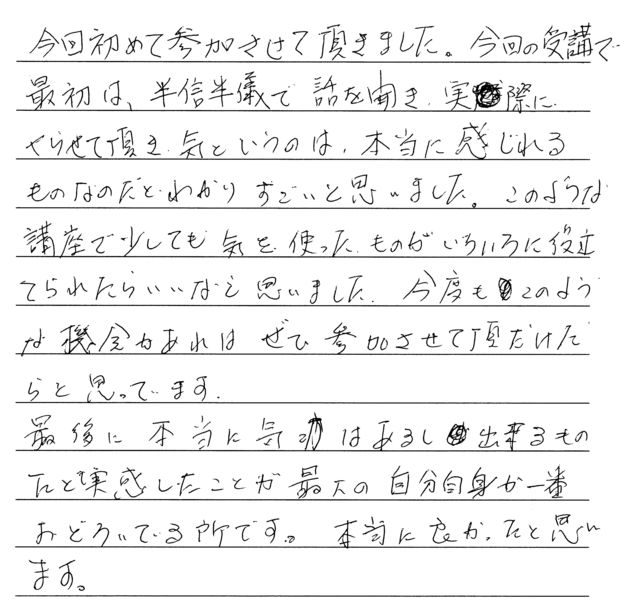 今回初めて参加させて頂きました。今回の受講で
最初は、半信半儀で話を聞き、実際に
やらせて頂き、気というのは、本当に感じれる
ものなのだとわかりすごいと思いました。このような
講座で少しても気を使ったものがいろいろに役立
てられたらいいなと思いました。今度もこのよう
な機会があればぜひ参加させて頂だけた
らと思ってます。
最後に本当に気功はあるし出来るもの
だと実感したことが最大の自分自身が一番
おどろいている所です。本当に良かったと思い
ます。